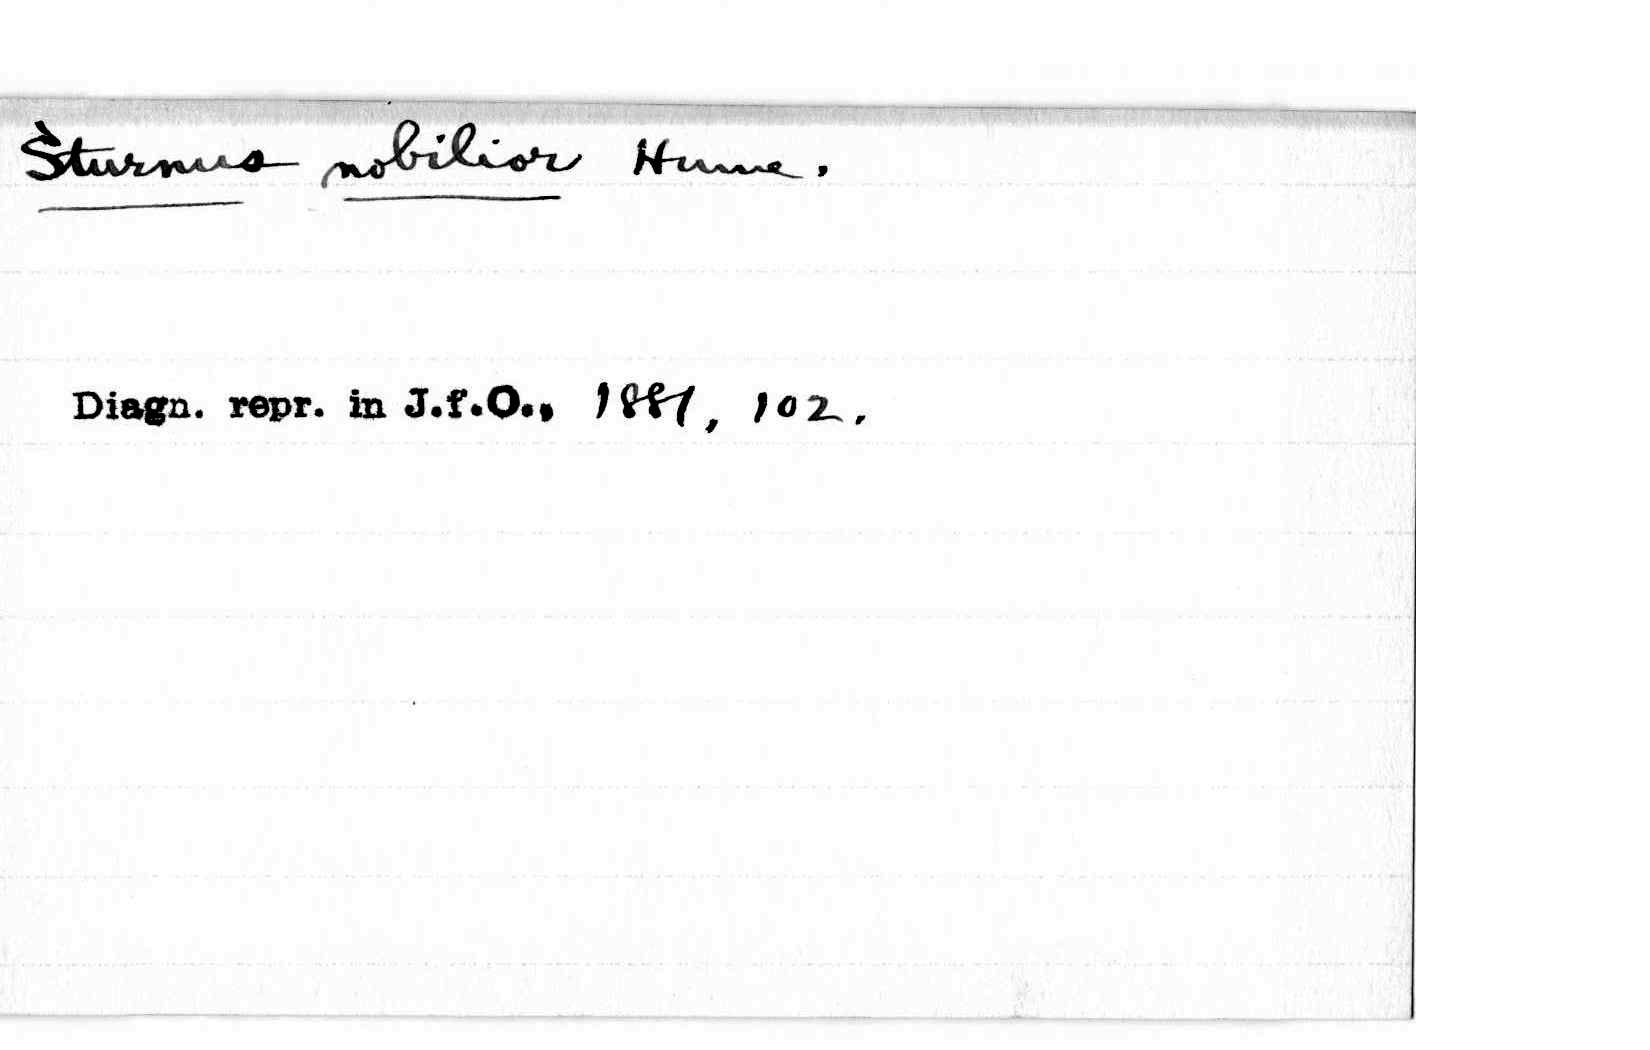 Sturnus nobilior Hume.
Diagn. repr. in J.f.O., 1881, 102.